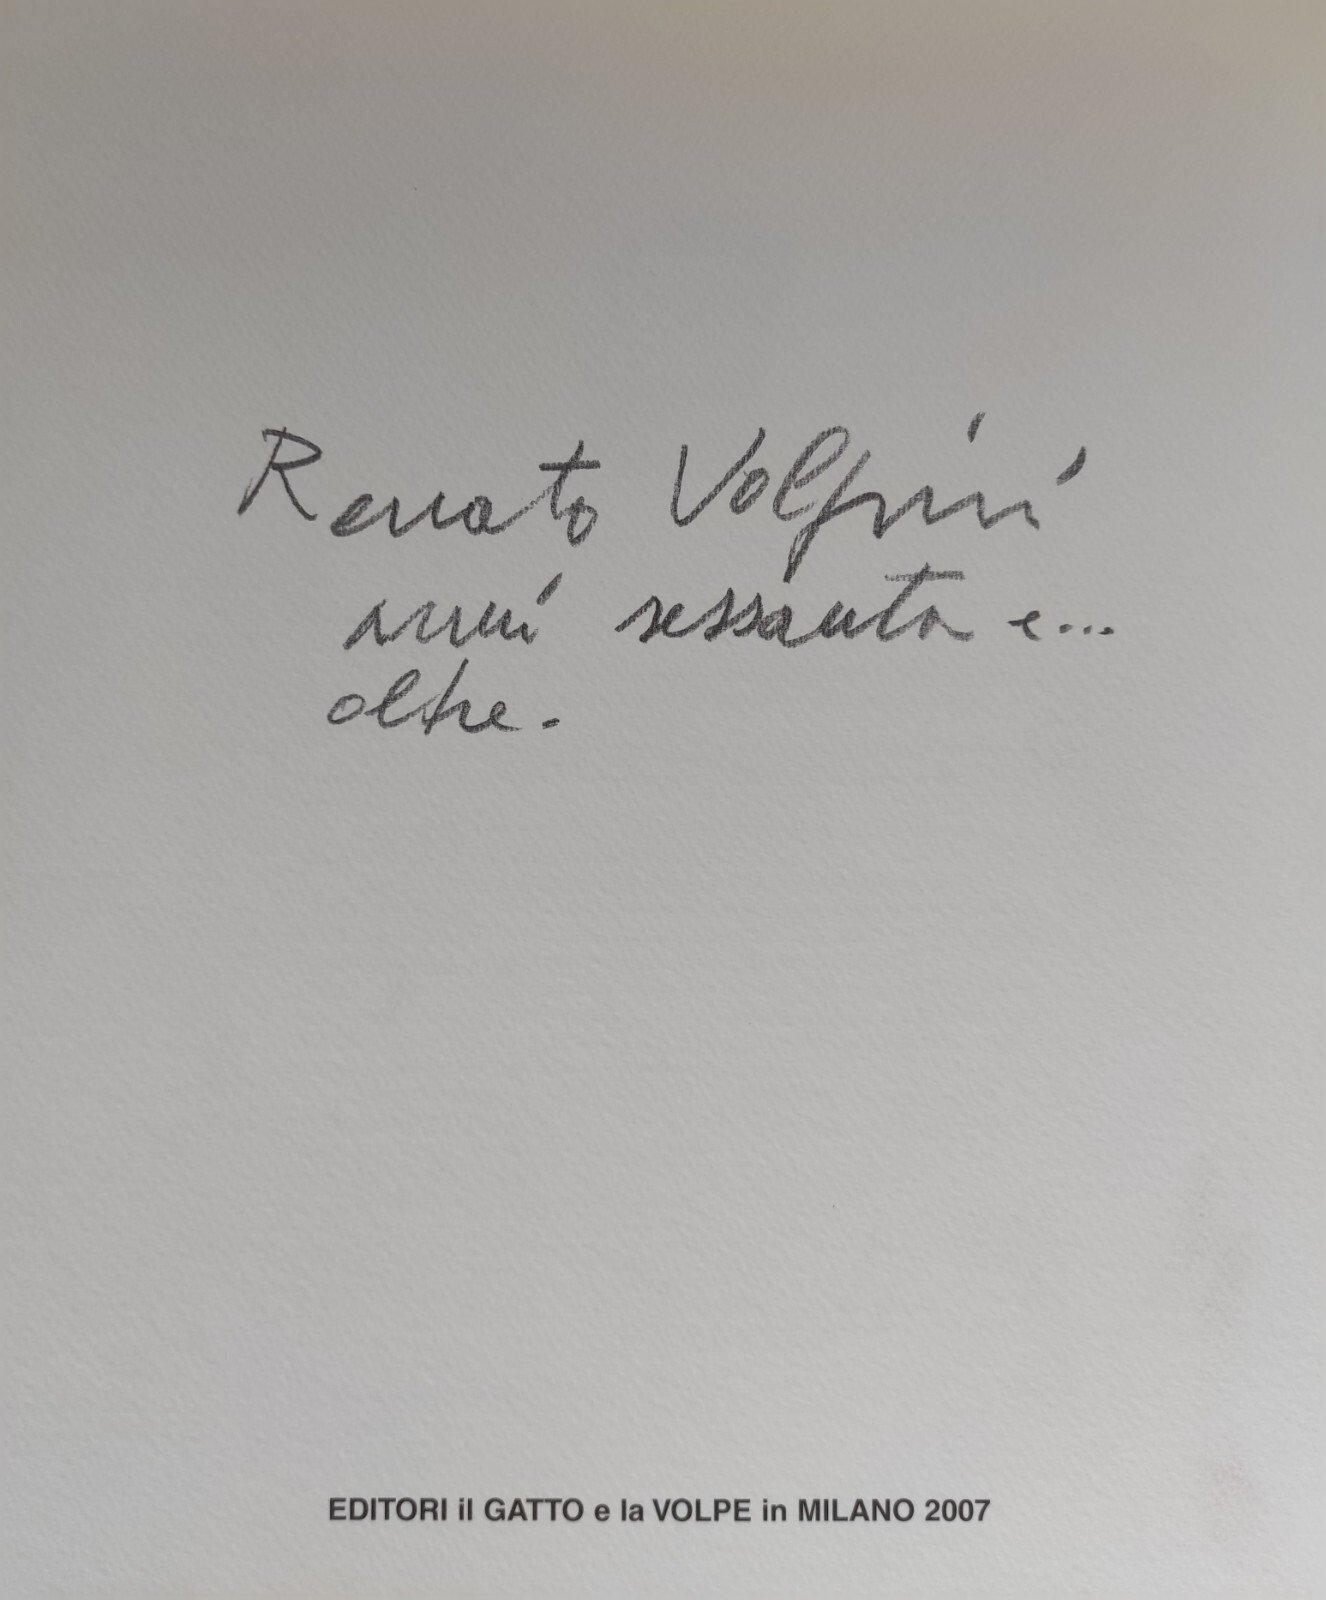 Renato Volpini
anni sessanta e...
oltre.
EDITORI il GATTO e la VOLPE in MILANO 2007